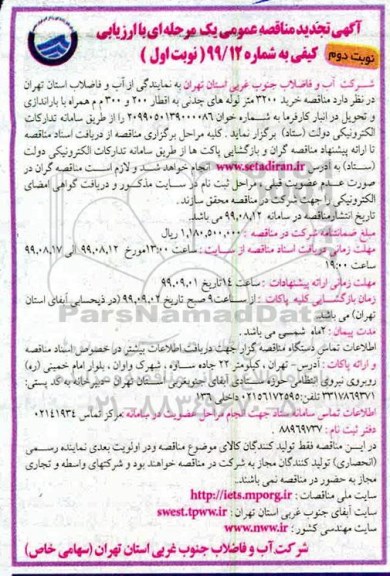 آگهی تجدید مناقصه عمومی یک مرحله ای با ارزیابی
کیفی به شماره ۹۹/۱۲ ( نوبت اول )
نوبت دوم
شرکت آب و فاضلاب جنوب غربی استان تهران به نمایندگی از آب و فاضلاب استان تهران
در نظر دارد مناقصه خرید ۳۲۰۰ متر لوله های چدنی به اقطار ۲۰۰ و ۳۰۰ م م همراه با باراندازی
و تحویل در انبار کارفرما به شماره خوان ۲۰۹۹۰۵۰۱۳۹۰۰۰۰۸۶ را از طریق سامانه تدارکات
الکترونیکی دولت (ستاد) برگزار نماید . کلیه مراحل برگزاری مناقصه از دریافت اسناد مناقصه
تا ارائه پیشنهاد مناقصه گران و بازگشایی پاکت ها از طریق سامانه تدارکات الکترونیکی دولت
(ستاد) به آدرس www.setadiran.ir انجام خواهد شد و لازم است مناقصه گران در
صورت عدم عضویت قبلی ، مراحل ثبت نام در سایت مذکور و دریافت گواهی امضای
الکترونیکی را جهت شرکت در مناقصه محقق سازند .
تاریخ انتشار مناقصه در سامانه ۹۹,۰۸,۱۲ می باشد.
مبلغ ضمانتنامه شرکت در مناقصه : ۱,۱۸۰,۵۰۰,۰۰۰ ریال
مهلت زمانی دریافت اسناد مناقصه از سایت : ساعت ۱۳:۰۰ مورخ ۹۹,۰۸,۱۲ الی ۹۹,۰۸,۱۷
ساعت ۱۹:۰۰
مهلت زمانی ارائه پیشنهادات : ساعت ۱۴ تاریخ ۹۹,۰۹,۰۱
زمان بازگشایی کلیه پاکات : از ساعت ۹ صبح تاریخ ۹۹,۰۹,۰۲ (در ذیحسابی آبفای استان
تهران) می باشد
مدت پیمان : ۲ ماه شمسی می باشد .
اطلاعات تماس دستگاه مناقصه گزار جهت دریافت اطلاعات بیشتر در خصوص اسناد مناقصه
و ارائه پاکات : آدرس - تهران ، کیلومتر ۲۲ جاده ساوه ، شهرک واوان ، بلوار امام خمینی (ره)
روبروی نیروی انتظامی حوزه ستادی آبفای جنوبغربی استان تهران - دبیرخانه به کد پستی:
۳۳۱۷۸۶۹۳۷۱ تلفن: ۰۲۱۵۶۱۷۲۵۹۵ داخلی ۱۳۶
اطلاعات تماس سامانه ستاد جهت انجام مراحل عضویت در سامانه: مرکز تماس ۰۲۱۴۱۹۳۴
دفتر ثبت نام : ۸۸۹۶۹۷۳۷
در این مناقصه فقط تولید کنندگان کالای موضوع مناقصه و در اولویت بعدی نماینده رسمی
(انحصاری) تولید کنندگان مجاز به شرکت در مناقصه خواهند بود و شرکتهای واسطه و تجاری
مجاز به حضور در مناقصه نمی باشند.
سایت ملی مناقصات : http://iets.mporg.ir
سایت آبفای جنوب غربی استان تهران : swest.tpww.ir
سایت مهندسی کشور : www.nww.ir
شرکت آب و فاضلاب جنوب غربی استان تهران (سهامی خاص)
ParsNamadData